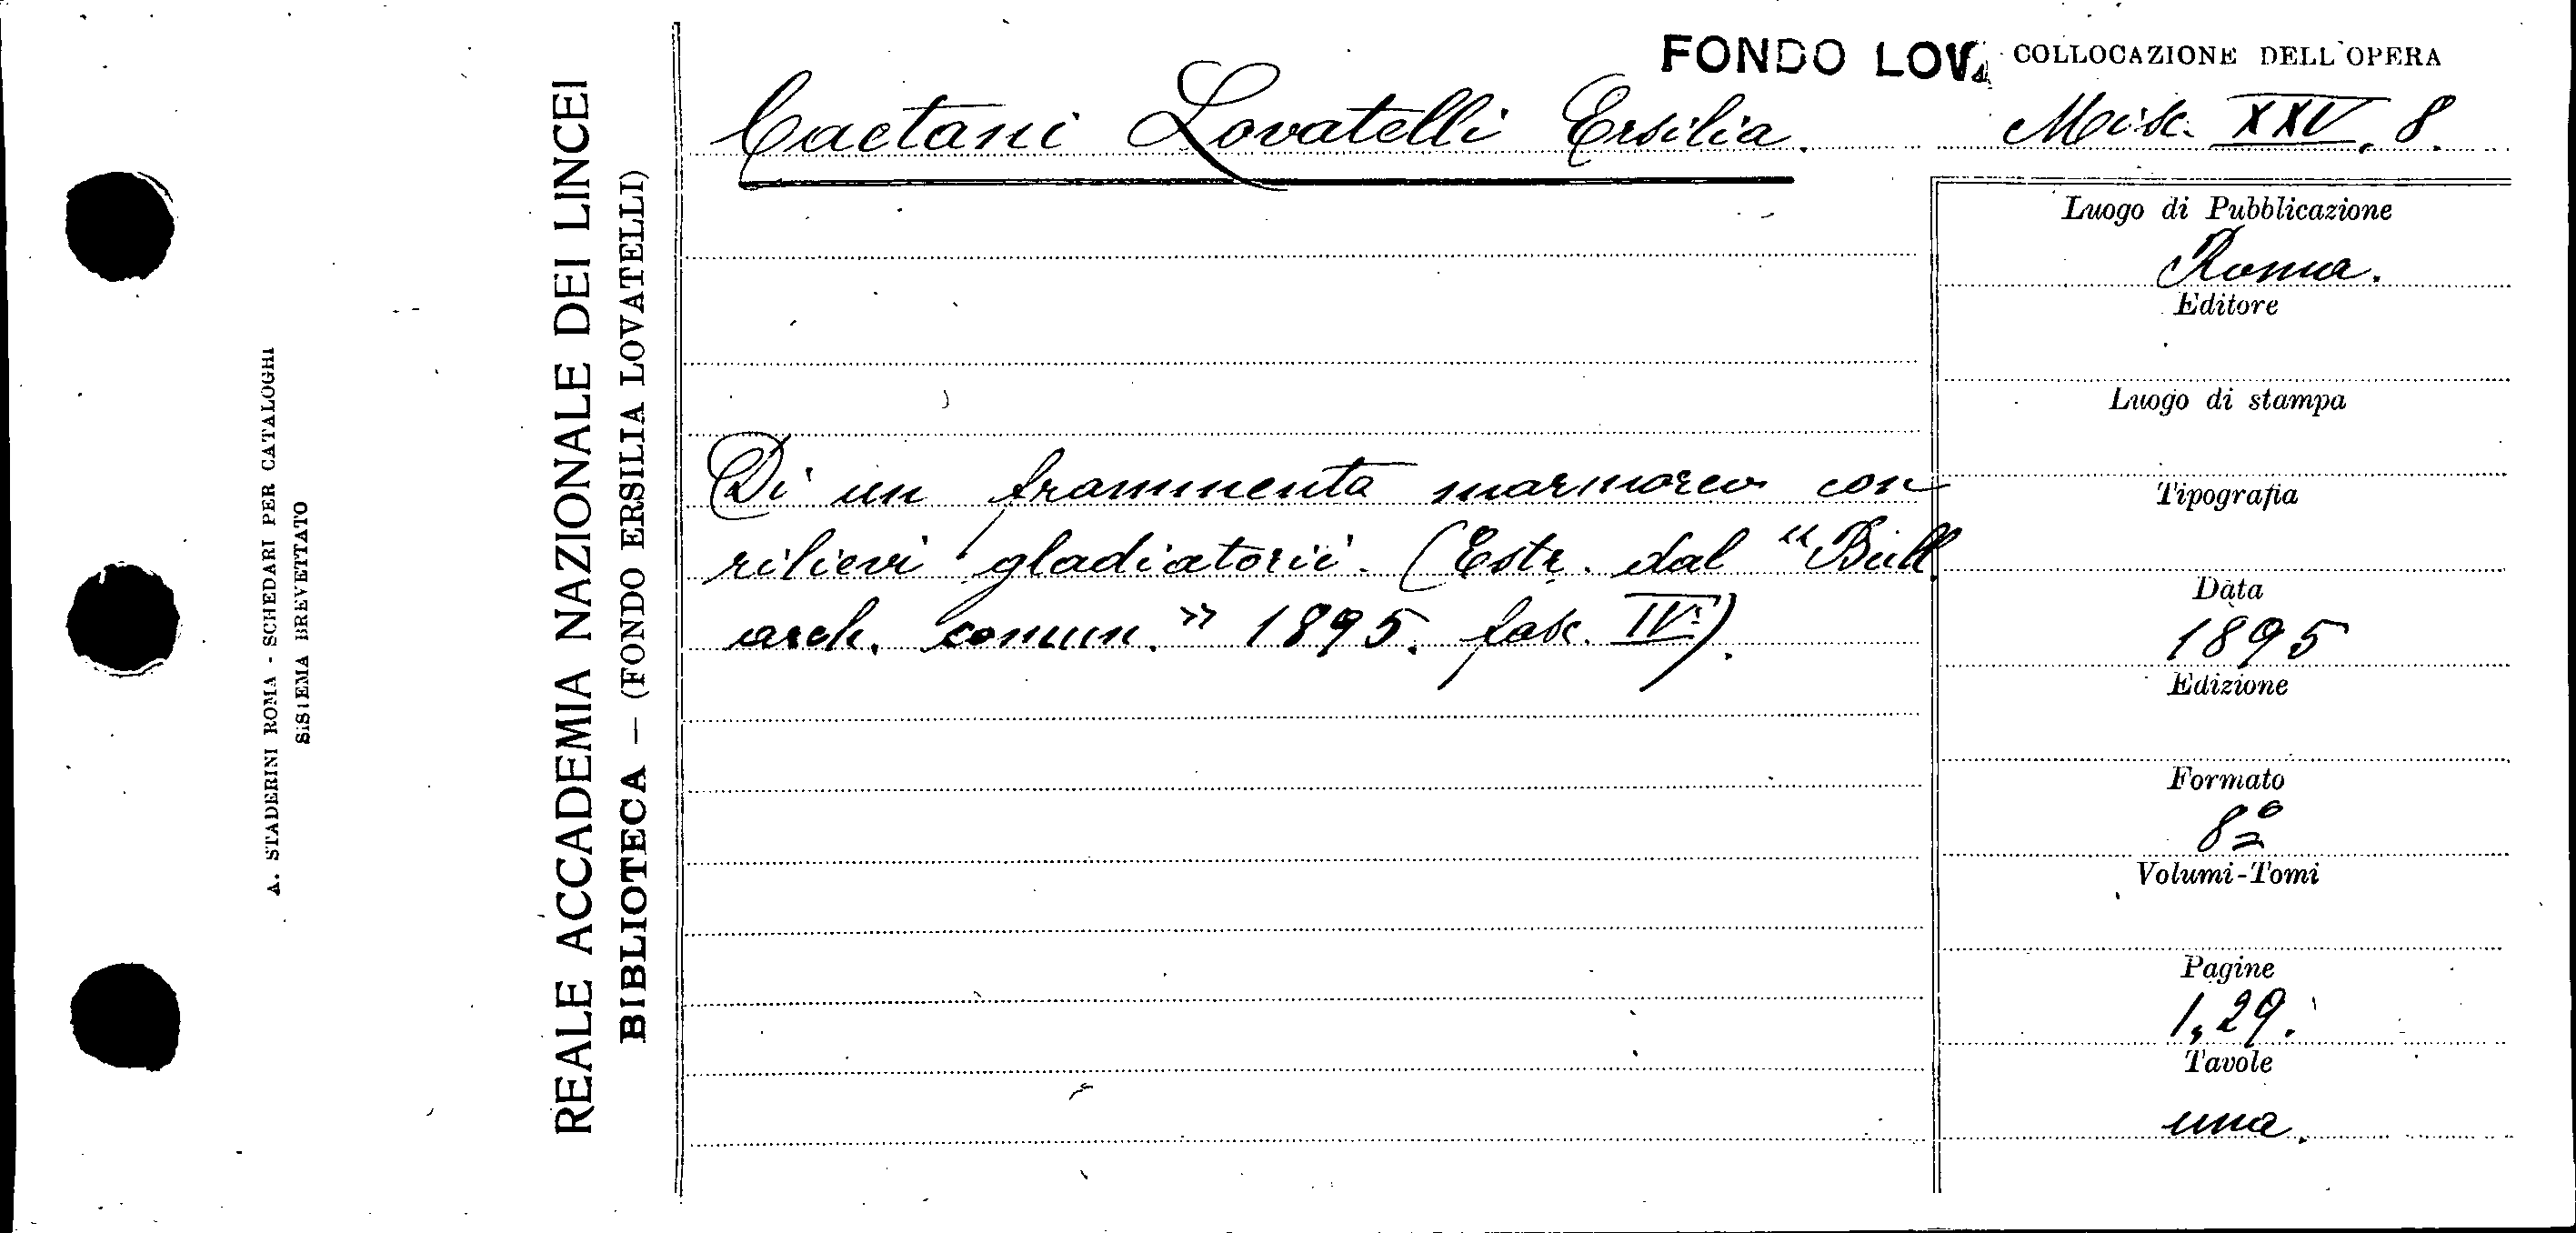 A. STADERINI ROMA - SCHEDARI PER CATALOGHI
SISTEMA BREVETTATO
REALE ACCADEMIA NAZIONALE DEI LINCEI
BIBLIOTECA — (FONDO ERSILIA LOVATELLI)
FONDO LOV.
COLLOCAZIONE DELL'OPERA
Caetani Lovatelli Ersilia.
Misc. XXV, 8.
Di un frammento marmoreo con
rilievi gladiatorii. (Estr. dal "Bull.
arch. comun." 1895. fasc. IV°).
Luogo di Pubblicazione
Roma.
Editore
Luogo di stampa
Tipografia
Data
1895
Edizione
Formato
8°
Volumi-Tomi
Pagine
1,29.
Tavole
una.